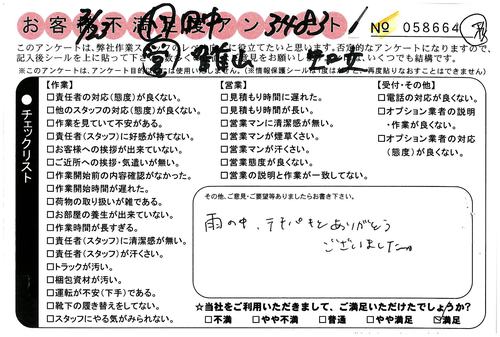 お客様不満足度アンケート
7/23 34483
№ 058664
このアンケートは、弊社作業スタッフのレベル
に役立てたいと思います。否定的なアンケートになりますので、
記入後シールを上に貼って下さい
いくつでも結構です。
※このアンケートは、アンケート目的
使用いたしません。(※情報保護シール
度はると、再度貼りなおすことはできません)
チェックリスト
【作業】
□責任者の対応(態度)が良くない。
□他のスタッフの対応(態度)が良くない。
□作業を見ていて不安がある。
□責任者(スタッフ)に好感が持てない。
□お客様への挨拶が出来ていない。
□ご近所への挨拶・気遣いが無い。
□作業開始前の内容確認がなかった。
□作業開始時間が遅れた。
□荷物の取り扱いが雑である。
□お部屋の養生が出来ていない。
□作業時間が長すぎる。
□責任者(スタッフ)に清潔感が無い。
□責任者(スタッフ)が汗くさい。
□トラックが汚い。
□梱包資材が汚い。
□運転が不安(下手)である。
□靴下の履き替えをしてない。
□スタッフにやる気がみられない。
【営業】
□見積もり時間に遅れた。
□見積もり時間が長い。
□営業マンに清潔感が無い。
□営業マンが煙草くさい。
□営業マンが汗くさい。
□営業態度が良くない。
□営業の説明と作業が一致してない。
【受付・その他】
□電話の対応が良くない。
□オプション業者の説明
・作業が良くない。
□オプション業者の対応
(態度)が良くない。
その他、ご意見・ご要望等ありましたらお書き下さい。
雨の中、テキパキとありがとう
ございました。
☆当社をご利用いただきまして、ご満足いただけたでしょうか?
□不満 □やや不満 □普通 □やや満足 ☑満足